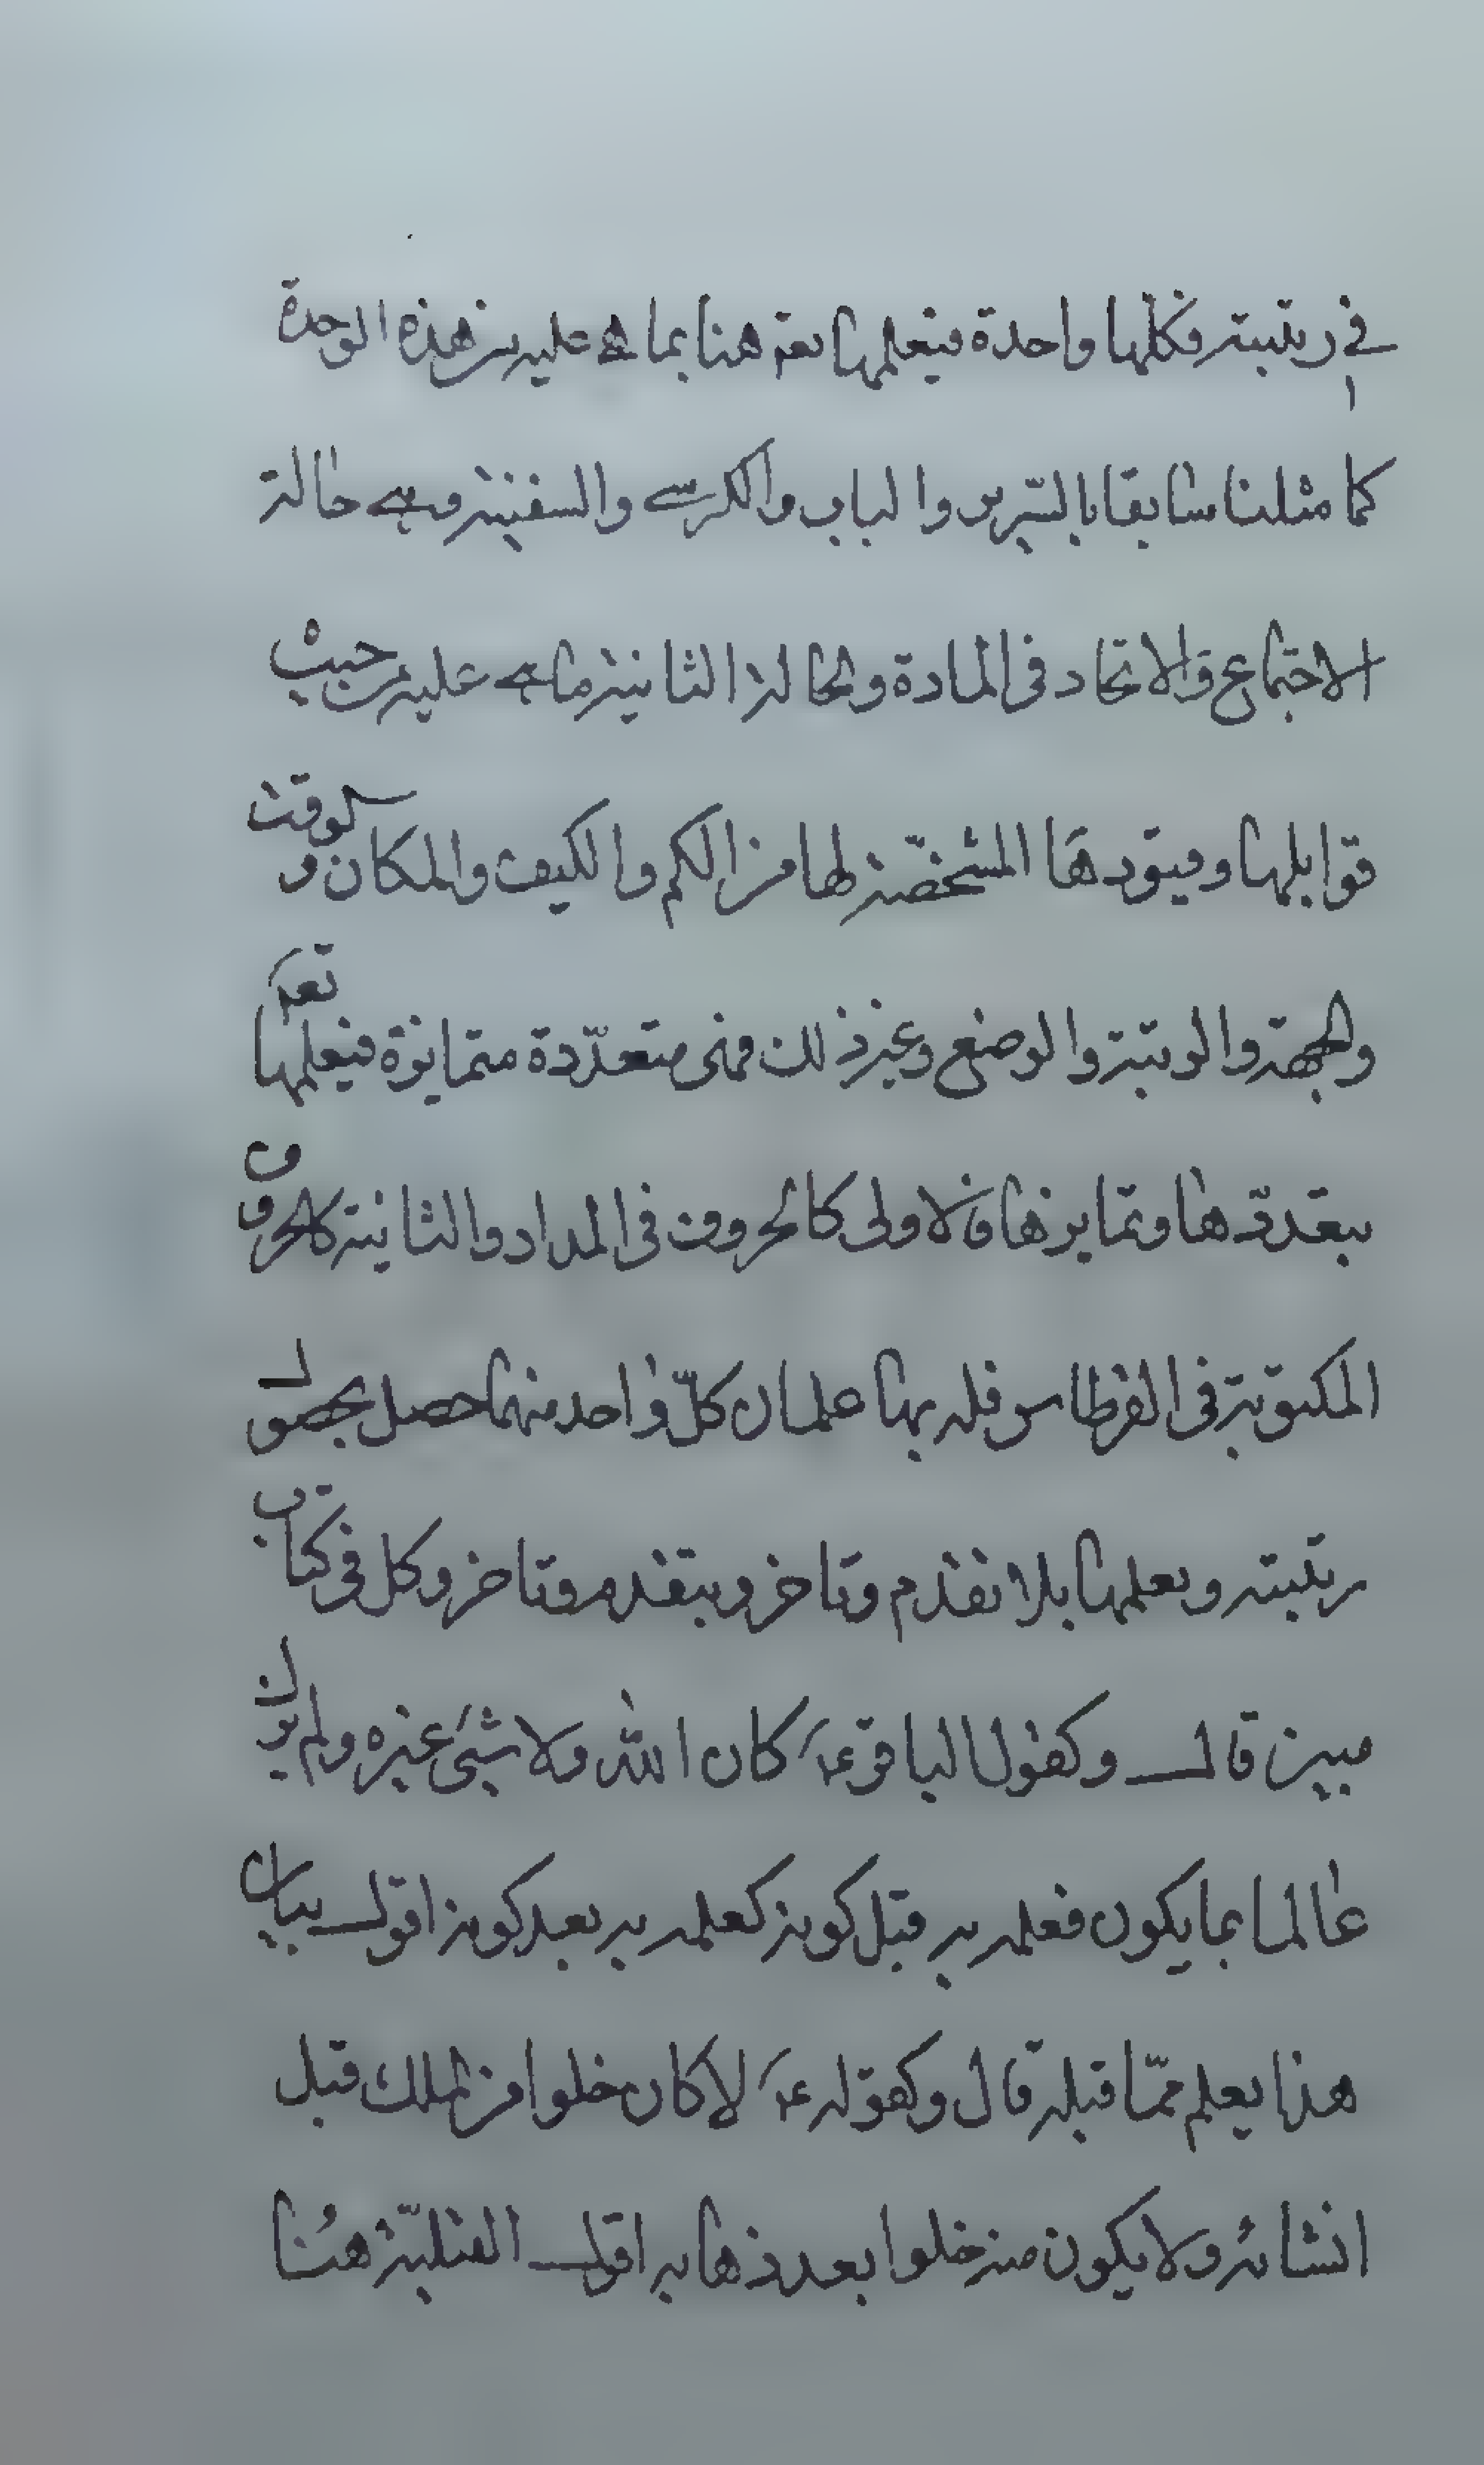 في رتبته فكلها واحدة فيعلمها تعم هنا بما هي عليه من هذه الوحدة
كما مثلنا سابقا بالسّرير والباب والكرسي والسفينة وهي حالة
الاجتماع والاتحاد في المادة والحالة الثانية ما هي عليه من حيث
قوابلها وقيودها المشخّصة لها من الكم والكيف والمكان والوقت
والجهة والرتبة والوضع وغير ذلك فهى متعدّدة متمايزة فيعلمها تعم
بتعدّدها وتمايزها فالاولى كالحروف في المداد والثانية كالحروف
المكتوبة في القرطاس فله بها علمان كلّ واحد منهما حصل بحصول
رتبته وبعلمها بلا تقدم وتاخر وبتقدم وتاخر وكل في كتاب
مبين قال وكقول الباقر ع كان الله ولا شئ غيره ولم يزل
عالما بما يكون فعلمه به قبل كونه كعلمه به بعد كونه اقول بيان
هذا يعلم ممّا قبله قال وكقوله ع لا كان خلوا من الملك قبل
انشائه ولا يكون منه خلوا بعد ذهابه اقول القبليّة هنا